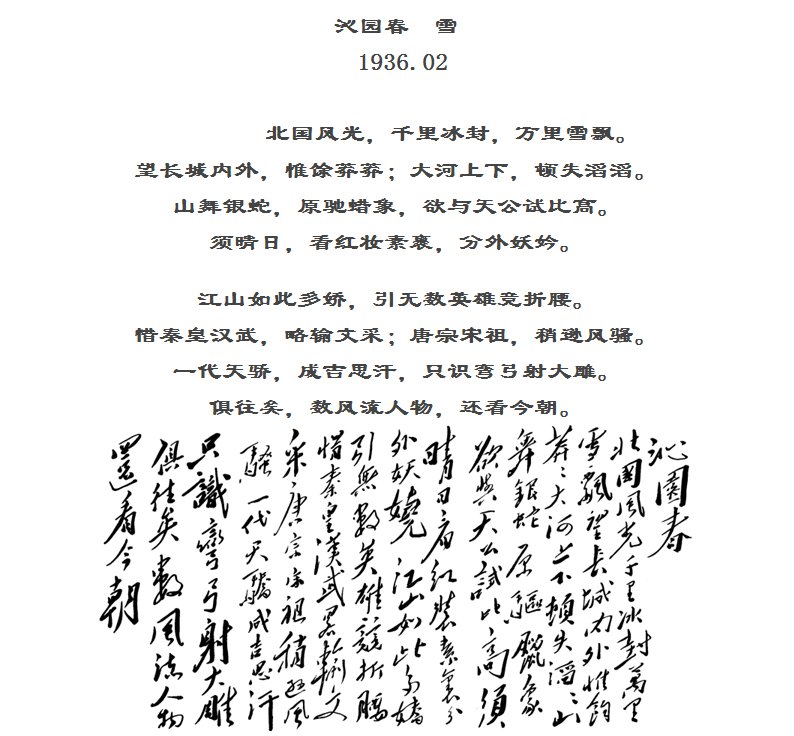 沁园春　雪
1936.02
北国风光，千里冰封，万里雪飘。
望长城内外，惟馀莽莽；大河上下，顿失滔滔。
山舞银蛇，原驰蜡象，欲与天公试比高。
须晴日，看红妆素裹，分外妖娆。
江山如此多娇，引无数英雄竞折腰。
惜秦皇汉武，略输文采；唐宗宋祖，稍逊风骚。
一代天骄，成吉思汗，只识弯弓射大雕。
俱往矣，数风流人物，还看今朝。
沁園春
北國風光千里冰封萬里
雪飄望長城内外惟餘
莽〻大河上下頓失滔〻山
舞銀蛇原驅臘象
欲與天公試比高須
晴日看紅裝素裹分
外妖嬈江山如此多嬌
引無數英雄競折腰
惜秦皇漢武畧輸文
采唐宗宋祖稍遜風
騷一代天驕成吉思汗
只識彎弓射大雕
俱往矣數風流人物
還看今朝